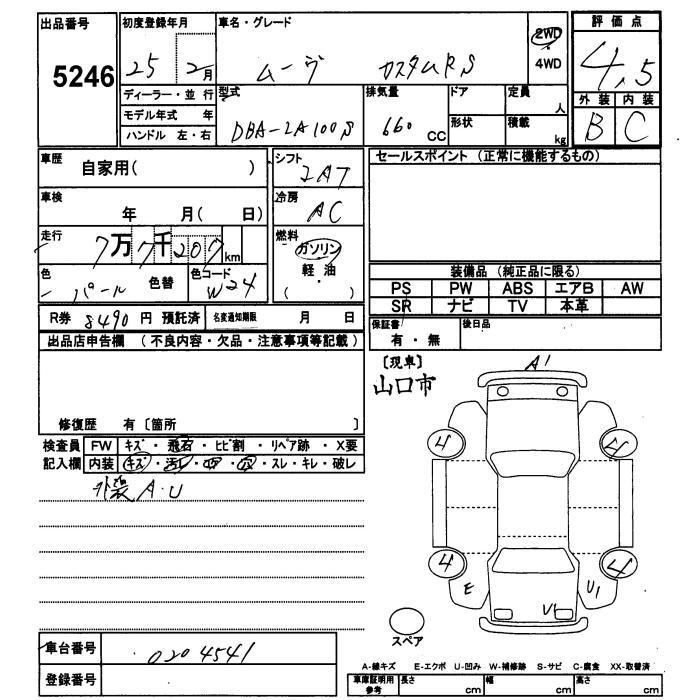 出品番号
5246
初度登録年月
25 2月
車名・グレード
ムーヴ カスタムRS
2WD
4WD
評価点
4.5
外装 内装
B C
ディーラー・並行
モデル年式 年
ハンドル 左・右
型式
DBA-LA100S
排気量
660 CC
ドア
形状
定員
人
積載
kg
車歴
自家用( )
シフト
IAT
セールスポイント (正常に機能するもの)
車検
年 月( 日)
冷房
AC
走行
7万7千207km
燃料
ガソリン
軽・油
( )
色
パール
色替
色コード
W24
装備品 (純正品に限る)
PS PW ABS エアB AW
SR ナビ TV 本革
R券 8490 円 預託済
名変通知期限 月 日
保証書
有・無
後日品
出品店申告欄 (不良内容・欠品・注意事項等記載)
[現車]
山口市
修復歴 有〔箇所 〕
検査員
記入欄
FW キズ・飛石・ヒビ割・リペア跡・X要
内装 キズ・汚レ・コゲ・穴・スレ・キレ・破レ
外装A・U
A1
4
4
4
4
E
U1
V1
スペア
車台番号
0204541
登録番号
A-線キズ E-エクボ U-凹み W-補修跡 S-サビ C-腐食 XX-取替済
車庫証明用
参考
長さ cm
幅 cm
高さ cm